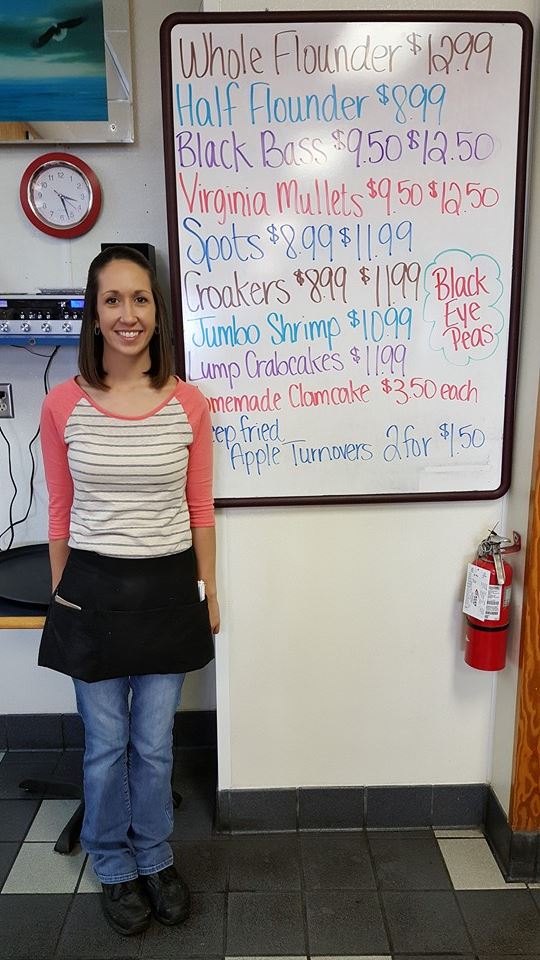 Whole Flounder $12.99
Half Flounder $8.99
Black Bass $9.50 $12.50
Virginia Mullets $9.50 $12.50
Spots $8.99 $11.99
Croakers $8.99 $11.99
Jumbo Shrimp $10.99
Lump Crabcakes $11.99
omemade Clamcake $3.50 each
eep fried
Apple Turnovers 2 for $1.50
Black
Eye
Peas